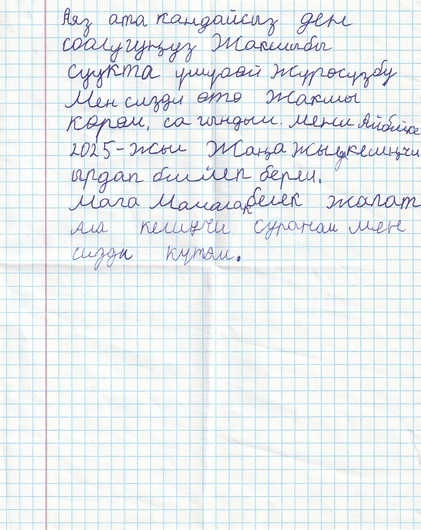 Аяз ата кандайсыз ден
соолугуңуз Жакшыбы
суукта үшүбөй жүрөсүзбү
Мен сизди өтө жакшы
көрөм, сагындым. Мени Айбийке
2025-жыл Жаңа жыл келиңчи
ырдап бийлеп берем.
Мага белек жалат
ала келиңчи суранам мен
сизди күтөм.